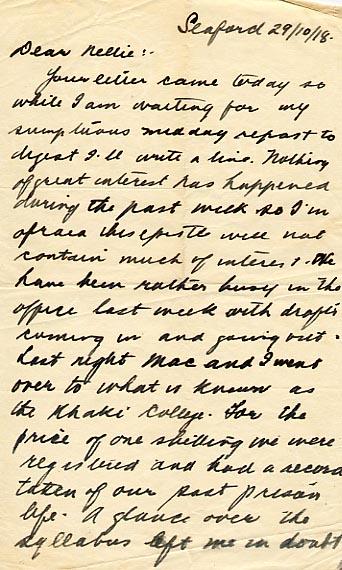 Seaford 29/10/18.
Dear Nellie:-
Your letter came today so
while I am waiting for my
sumptuous midday repast to
digest I'll write a line. Nothing
of great interest has happened
during the past week so I'm
afraid this epistle will not
contain much of interest. We
have been rather busy in the
office last week with drafts
coming in and going out.
Last night Mac and I went
over to what is known as
the Khaki College. For the
price of one shilling we were
registered and had a record
taken of our past prison
life. A glance over the
syllabus left me in doubt